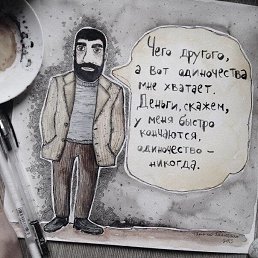 Чего другого,
а вот одиночества
мне хватает.
Деньги, скажем,
у меня быстро
кончаются,
одиночество –
никогда.